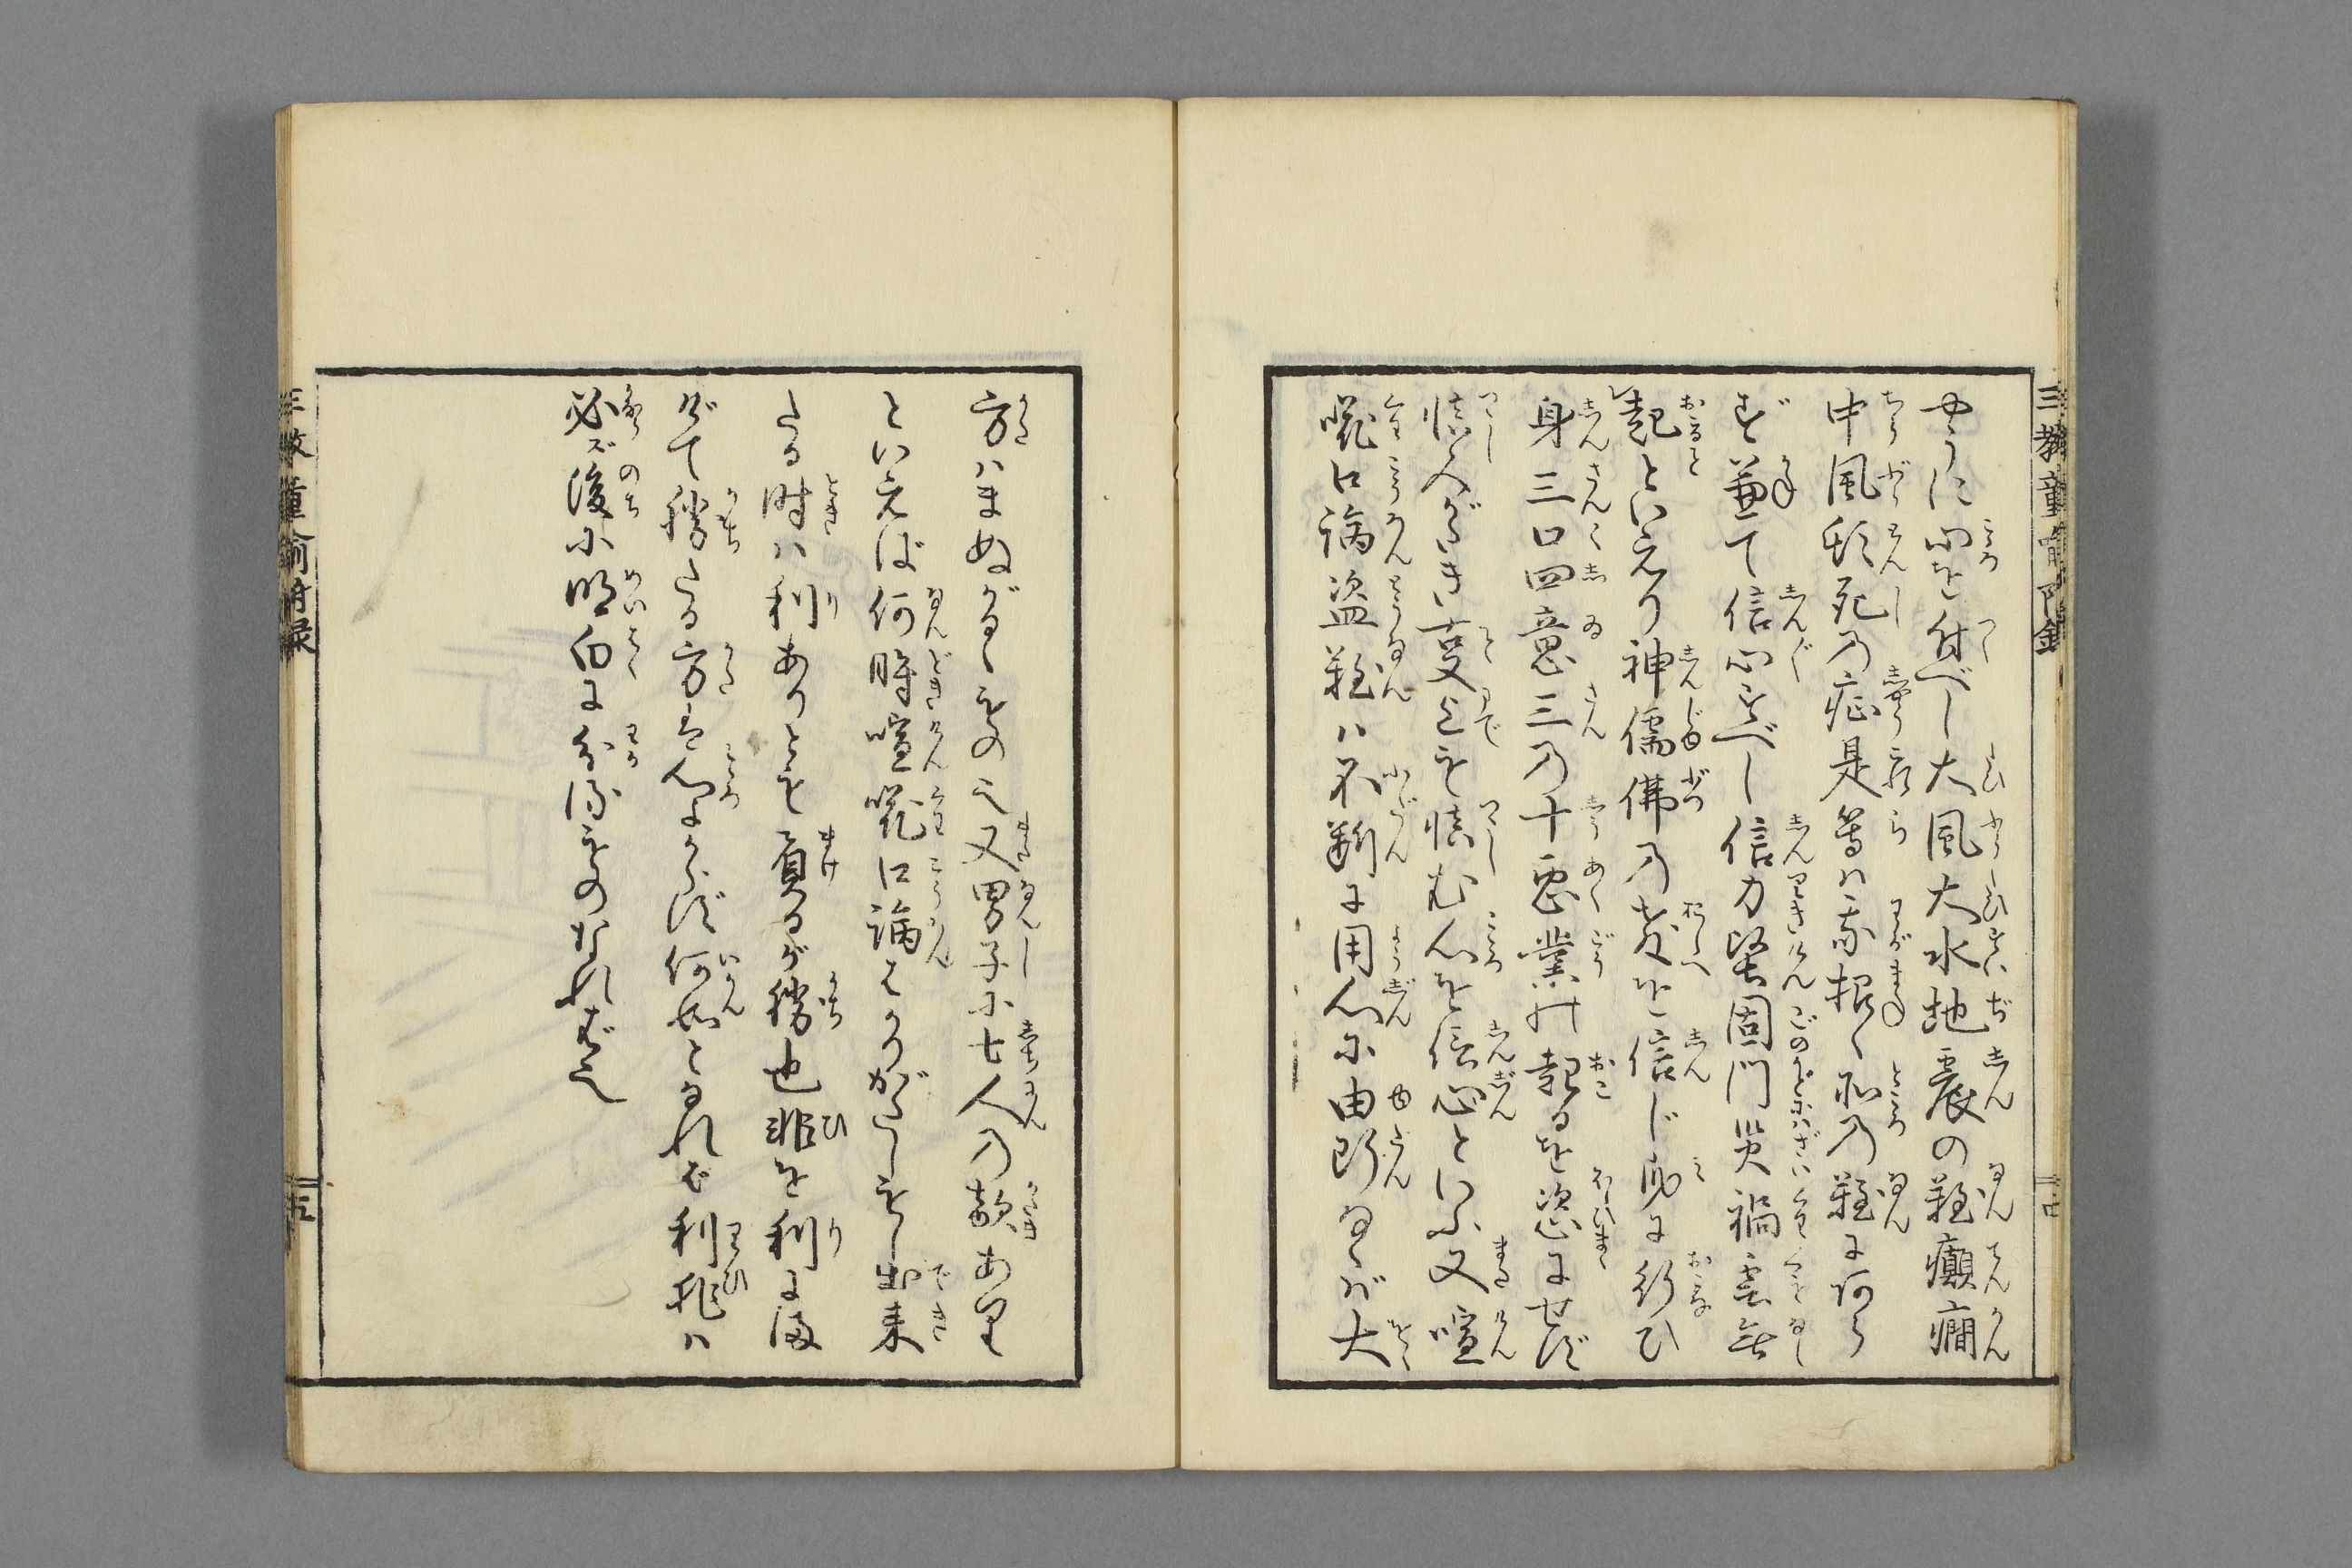 三教童喩附録
やうに心を付べし大風大水地震の難癲癇
中風頓死乃症是等ハ我招く所乃難にあら
ず兼て信心すべし信力堅固門災禍雲無
起といえり神儒佛乃教を信じ身に行ひ
身三口四意三乃十悪業の起るを恣にせず
慎人がたき事迄を慎む心を信心といふ又喧
嘩口論盗難ハ不断に用心に由断なくば大
方ハまぬがるゝもの也又男子に七人乃敵あり
といえば何時喧嘩口論しかけがたしもし出来
たる時ハ利ありとも負るが勝也非を利にま
げて勝たる方も心よからず何如となれば利非ハ
必ズ後に明白に分るものなればなり
三教童喩附録